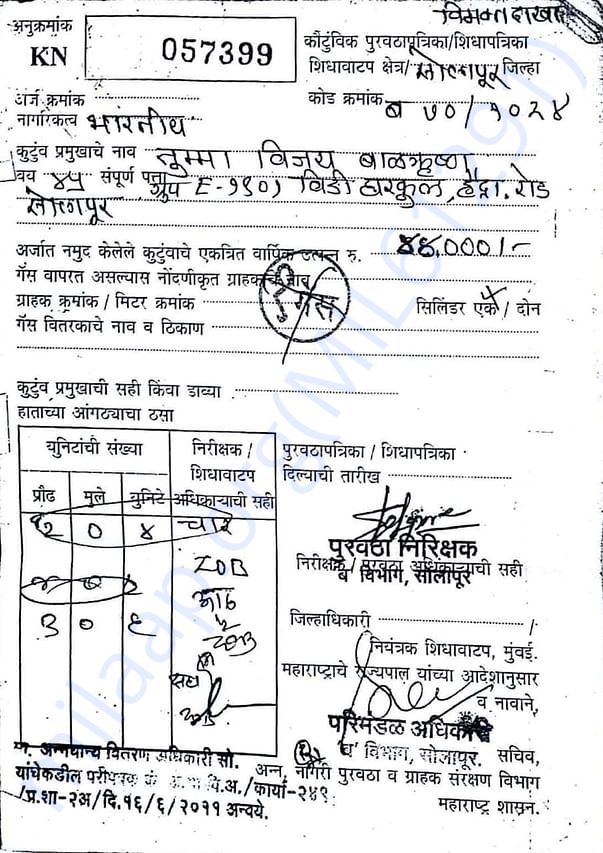 विभक्त दाखल
अनुक्रमांक
KN
057399
कौटुंबिक पुरवठापत्रिका/शिधापत्रिका
शिधावाटप क्षेत्र/ सोलापूर जिल्हा
अर्ज क्रमांक
कोड क्रमांक ब ७०/१०२४
नागरिकत्व भारतीय
कुटुंब प्रमुखाचे नाव तुम्मा विजय बाळकृष्ण
वय ४५ संपूर्ण पत्ता ग्रुप E-१९०) विडी घरकुल, हैद्रा. रोड
सोलापूर
अर्जात नमुद केलेले कुटुंबाचे एकत्रित वार्षिक उत्पन्न रु. ४४,०००/-
गॅस वापरत असल्यास नोंदणीकृत ग्राहकाचे नाव
ग्राहक क्रमांक / मिटर क्रमांक
गॅस
सिलिंडर एक / दोन
गॅस वितरकाचे नाव व ठिकाण
कुटुंब प्रमुखाची सही किंवा डाव्या
हाताच्या आंगठ्याचा ठसा
युनिटांची संख्या
निरीक्षक /
शिधावाटप
अधिकाऱ्याची सही
प्रौढ मुले युनिटे
२ ० ४ चार
३ ० ६
पुरवठापत्रिका / शिधापत्रिका
दिल्याची तारीख
पुरवठा निरिक्षक
निरीक्षक / पुरवठा अधिकाऱ्याची सही
ब विभाग, सोलापूर
जिल्हाधिकारी /
नियंत्रक शिधावाटप, मुंबई.
महाराष्ट्राचे राज्यपाल यांच्या आदेशानुसार
व नावाने,
परिमंडळ अधिकारी
'ब' विभाग, सोलापूर. सचिव,
अन्न, नागरी पुरवठा व ग्राहक संरक्षण विभाग
महाराष्ट्र शासन.
मा. अन्नधान्य वितरण अधिकारी सो.
यांचेकडील परीपत्रक वि.अ./कार्या-२४९
/प्र.शा-२अ/दि.१६/६/२०११ अन्वये.
milaap.org(MIL612291)